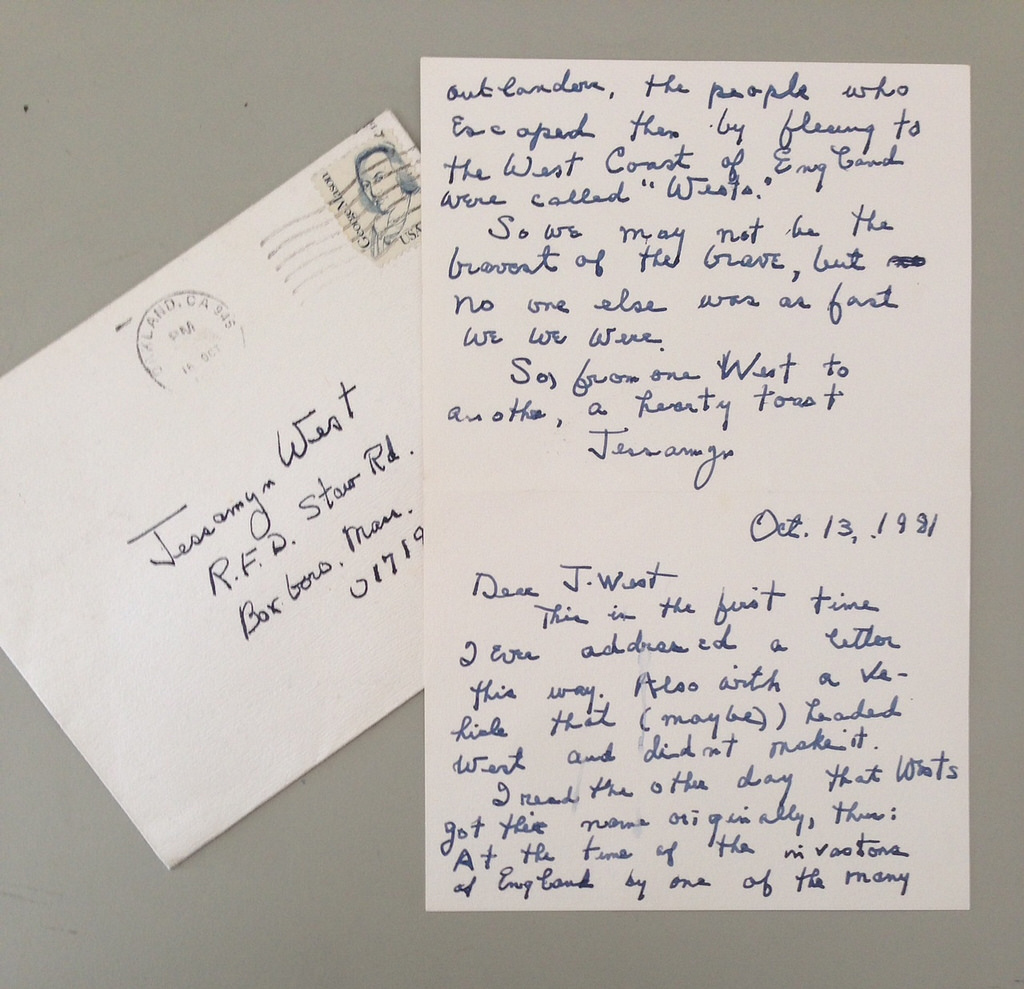 George Mason
USA
OAKLAND, CA 946
PM
OCT
Jessamyn West
R.F.D. Stow Rd.
Boxboro, Mass.
01719
outlanders, the people who
Escaped them by fleeing to
the West Coast of England
were called "Wests."
So we may not be the
bravest of the brave, but
no one else was as fast
we we were.
So, from one West to
another, a hearty toast
Jessamyn
Oct. 13, 1981
Dear J. West
This is the first time
I Ever addressed a letter
this way. Also with a ve-
hicle that (maybe)) headed
West and didn't make it.
I read the other day that Wests
got their name originally, thus:
At the time of the invasions
of England by one of the many